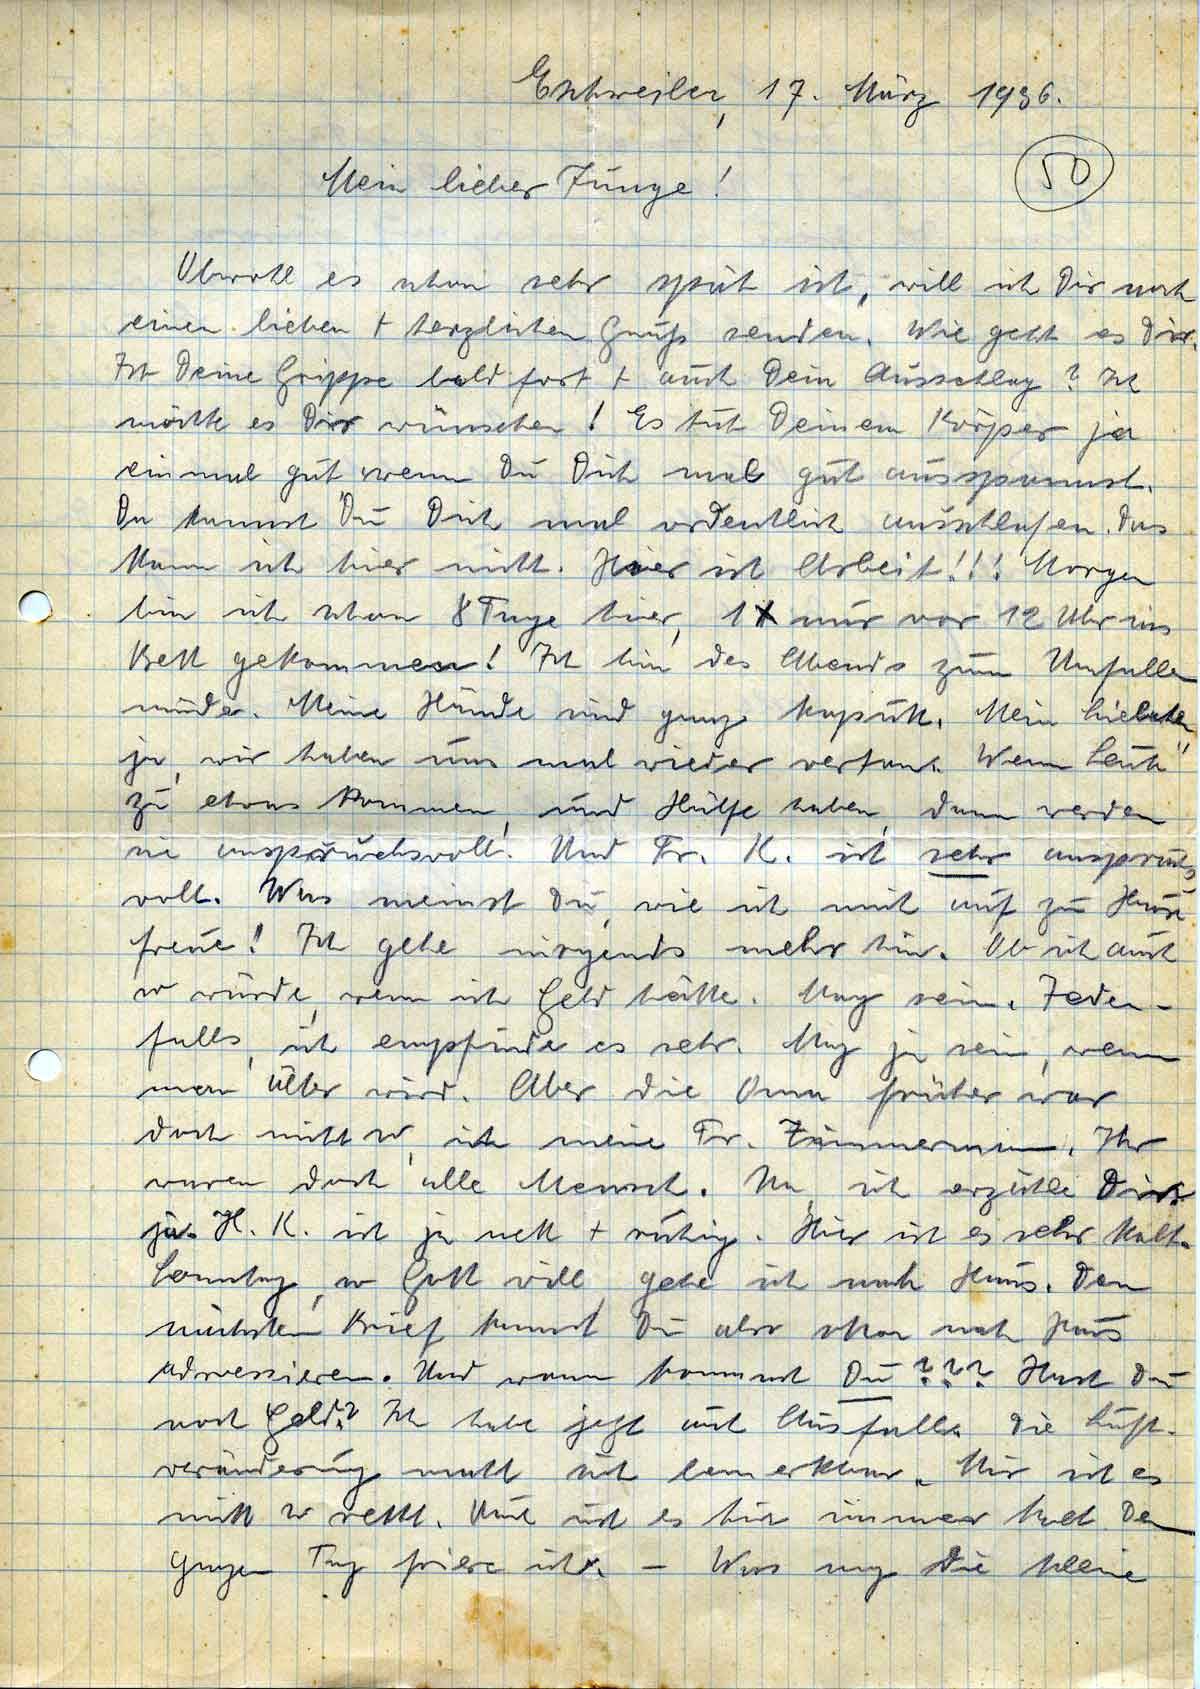 Eschweiler, 17. März 1936.
50
Mein lieber Junge!
Obwohl es schon sehr spät ist, will ich Dir noch
einen lieben + herzlichen Gruß senden. Wie geht es Dir.
Ist Deine Grippe bald fort + auch Dein Ausschlag? Ich
möchte es Dir wünschen! Es tut Deinem Körper ja
einmal gut wenn Du Dich mal gut ausspannst.
Da kannst Du Dich mal ordentlich ausschlafen. Das
kann ich hier nicht. Hier ist Arbeit!!! Morgen
bin ich schon 8 Tage hier, 1 x nur vor 12 Uhr ins
Bett gekommen! Ich bin des Abends zum Umfallen
müde. Meine Hände sind ganz kaputt. Mein
ja, wir haben uns mal wieder vertan. Wenn Leute
zu etwas kommen, und Hülfe haben, dann werden
sie anspruchsvoll. Und Fr. K. ist sehr anspruchs
voll. Was meinst Du, wie ich mich auf zu Haus
freue! Ich gehe nirgends mehr hin. Ob ich auch
so würde, wenn ich Geld hätte. Mag sein. Jeden-
falls, ich empfinde es sehr. Mag ja sein, wenn
man älter wird. Aber die Oma früher war
doch nicht so, ich meine Fr. Zimmermann. Ihr
waren doch alle Mensch. Na, ich erzähle Dirs
ja. H. K. ist ja nett + ruhig. Hier ist es sehr kalt.
Sonntag, so Gott will, gehe ich nach Haus. Den
nächsten Brief kannst Du also schon nach Haus
adressieren. Und wann kommst Du??? Hast Du
noch Geld? Ich habe jetzt auch Ausfall. die Luft-
veränderung macht sich bemerkbar. Mir ist es
nicht so recht. Und ist es hier immer kalt. Den
ganzen Tag friere ich. – Was mag die kleine